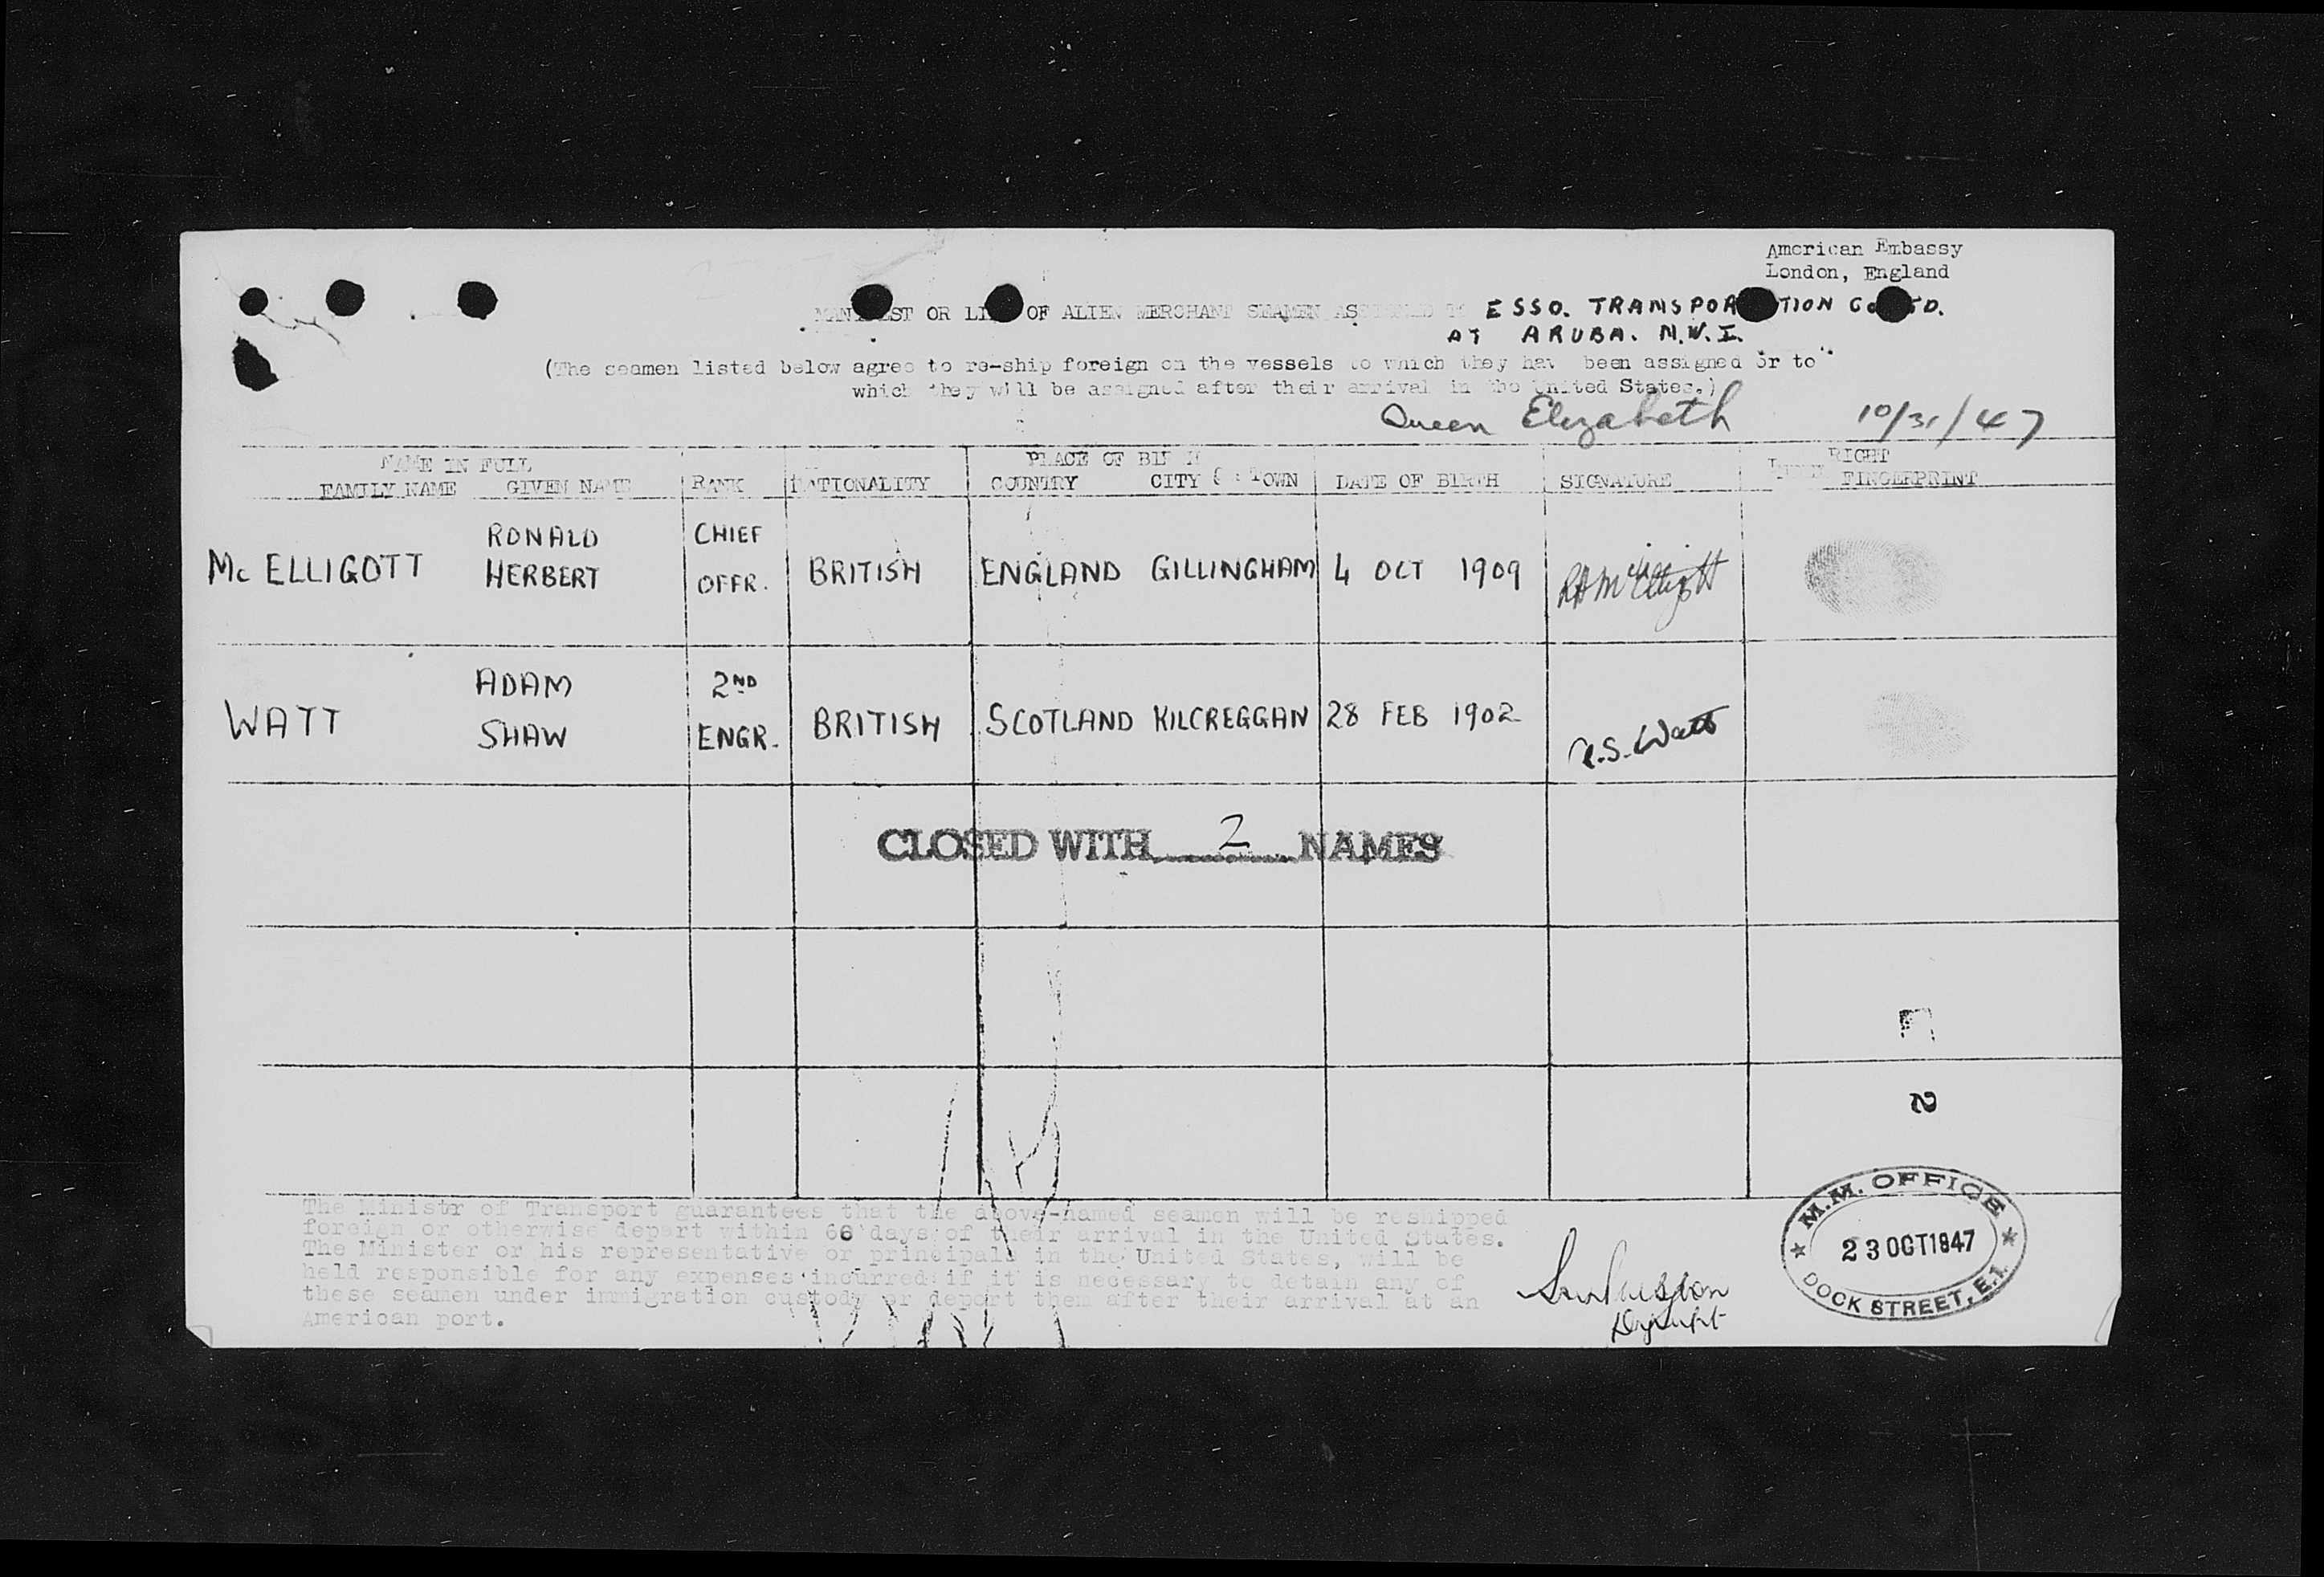 American Embassy
London, England
OR OF ALIEN MERCHANT SEAMEN ESSO. TRANSPOR TION
AT ARUBA. N.W.I.
(The seamen listed below agree to re-ship foreign on the vessels to which they have been assigned or to
which they will be assigned after their arrival in the United States.)
Queen Elizabeth 10/31/47
NAME IN FULL PLACE OF BIRTH RIGHT
FAMILY NAME GIVEN NAME RANK NATIONALITY COUNTRY CITY OR TOWN DATE OF BIRTH SIGNATURE FINGERPRINT
RONALD CHIEF
Mc ELLIGOTT HERBERT OFFR. BRITISH ENGLAND GILLINGHAM 4 OCT 1909 RHMcElligott
ADAM 2ND
WATT SHAW ENGR. BRITISH SCOTLAND KILCREGGAN 28 FEB 1902 A.S. Watt
CLOSED WITH 2 NAMES
2
The Minister of Transport guarantees that the above-named seamen will be reshipped
foreign or otherwise depart within 66 days of their arrival in the United States.
The Minister or his representative or principals in the United States, will be
held responsible for any expenses incurred if it is necessary to detain any of
these seamen under immigration custody or deport them after their arrival at an
American port.
M.M. OFFICE
23 OCT 1947
DOCK STREET, E.1.